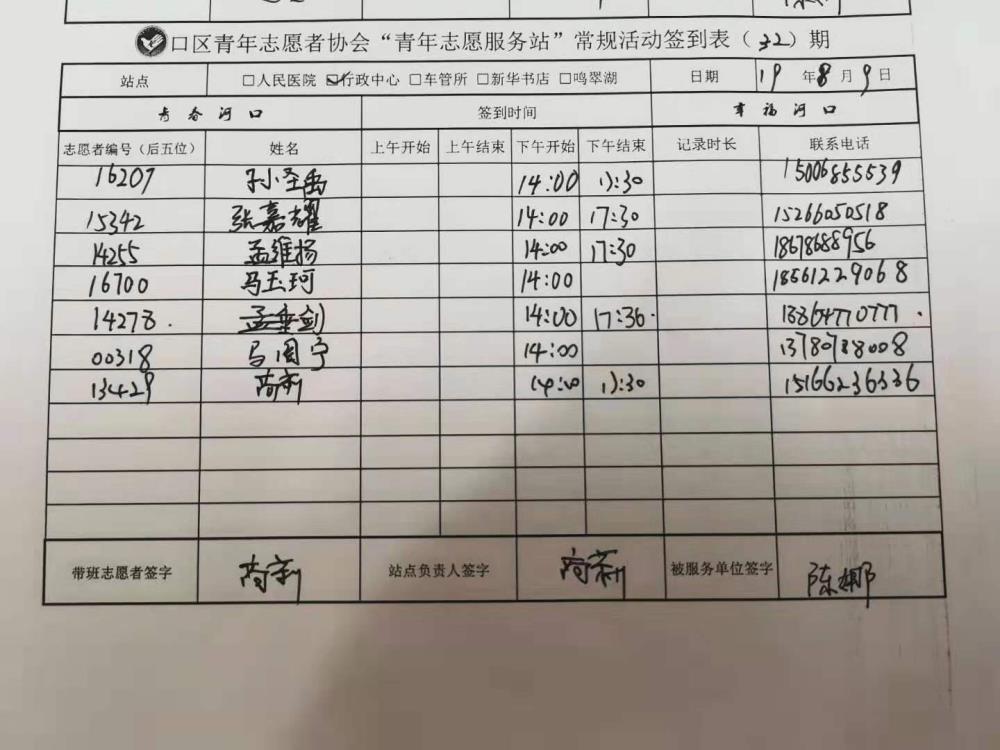 口区青年志愿者协会“青年志愿服务站”常规活动签到表（32）期
站点 □人民医院 ☑行政中心 □车管所 □新华书店 □鸣翠湖 日期 19年8月9日
青春河口 签到时间 幸福河口
志愿者编号（后五位） 姓名 上午开始 上午结束 下午开始 下午结束 记录时长 联系电话
16207 孙小圣禹 14:00 17:30 15006855539
15342 张嘉耀 14:00 17:30 15266050518
14255 孟维扬 14:00 17:30 18678688956
16700 马玉珂 14:00 18561229068
14278. 孟垂剑 14:00 17:36. 13864770777.
00318 马周宁 14:00 13780788008
13429 14:00 17:30 15166236336
带班志愿者签字 站点负责人签字 被服务单位签字 陈娜